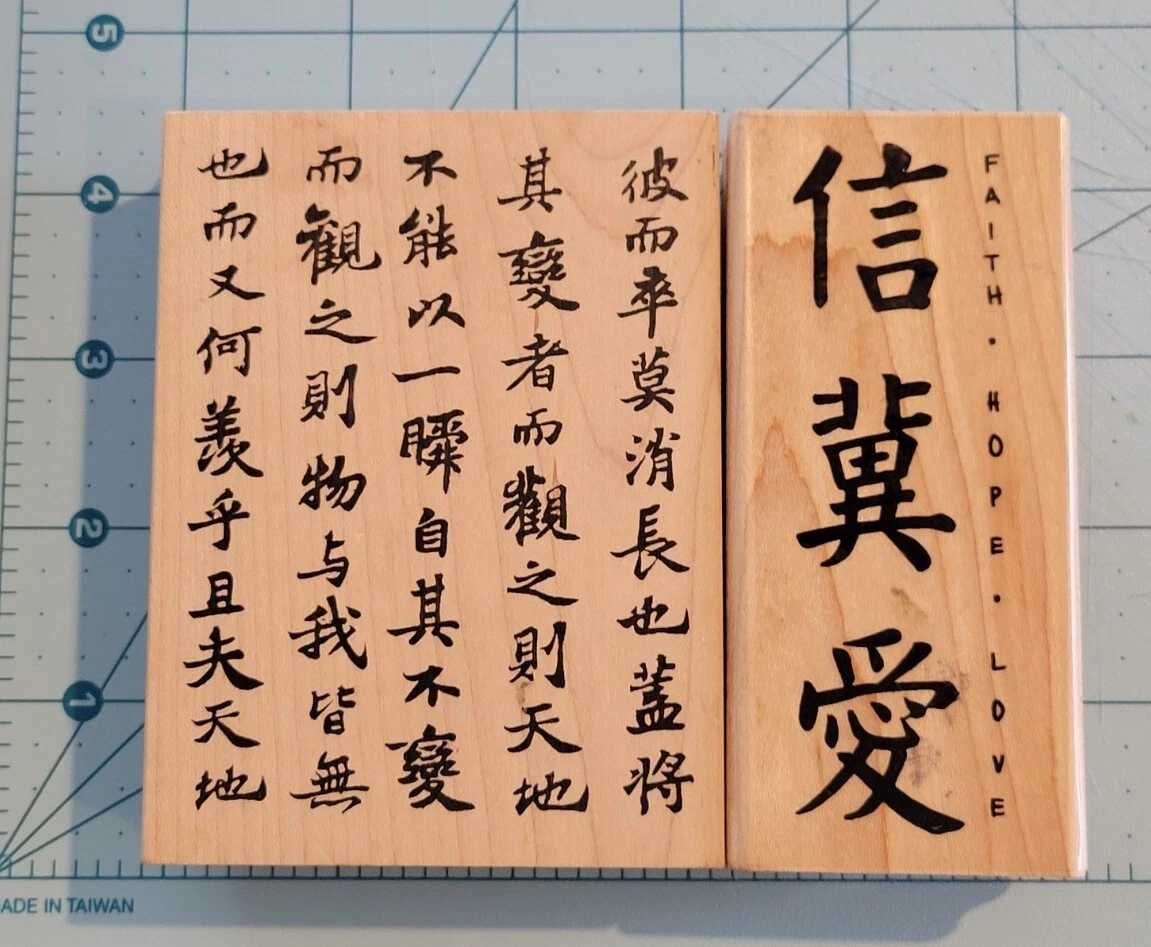 彼而卒莫消長也蓋将
其變者而觀之則天地
不能以一瞬自其不變
而觀之則物与我皆無
也而又何羨乎且夫天地
信冀愛
FAITH・HOPE・LOVE
5
4
3
2
1
ADE IN TAIWAN